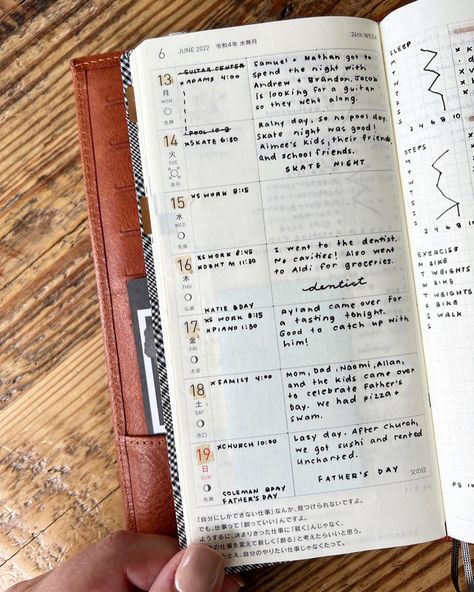 6 JUNE 2022 令和4年 水無月 24th WEEK
13
月
MON
先勝
GUITAR CENTER
×ADAMS 4:00
Samuel + Nathan got to
spend the night with
Andrew + Brandon. Jacob
is looking for a guitar
so they went along.
14
火
TUE
友引
POOL 10-2
×SKATE 6:30
Rainy day, so no pool day.
Skate night was good!
Aimee's kids, their friends
and school friends.
SKATE NIGHT
15
水
WED
先負
×S WORK 8:15
16
木
THU
仏滅
×S WORK 8:45
×DENT M 11:30
KATIE BDAY
I went to the dentist.
No cavities! Also went
to Aldi for groceries.
dentist
17
金
FRI
大安
×S WORK 8:15
×PIANO 1:30
Ryland came over for
a tasting tonight.
Good to catch up with
him!
18
土
SAT
赤口
×FAMILY 4:00
Mom, Dad, Naomi, Allan,
and the kids came over
to celebrate Father's
Day. We had pizza +
swam.
19
日
SUN
先勝
×CHURCH 10:00
COLEMAN BDAY
FATHER'S DAY
Lazy day. After church,
we got sushi and rented
Uncharted.
FATHER'S DAY 父の日
「自分にしかできない仕事」なんか、見つけられないですよ。
でも、仕事って「創っていい」んですよ。
ようするに、決まりきった仕事に「就く」んじゃなく、
の仕事を変えて新しく「創る」と考えたらいいと思う。
とえ、自分のやりたい仕事じゃなくたって。
SLEEP
M
T
W
T
F
S
S
2 4 6 8
STEPS
M
T
W
T
F
S
S
2 4 6 8 10
EXERCISE
M BIKE
T WEIGHTS
W BIKE
T WEIGHTS
F BIKE
S WALK
S